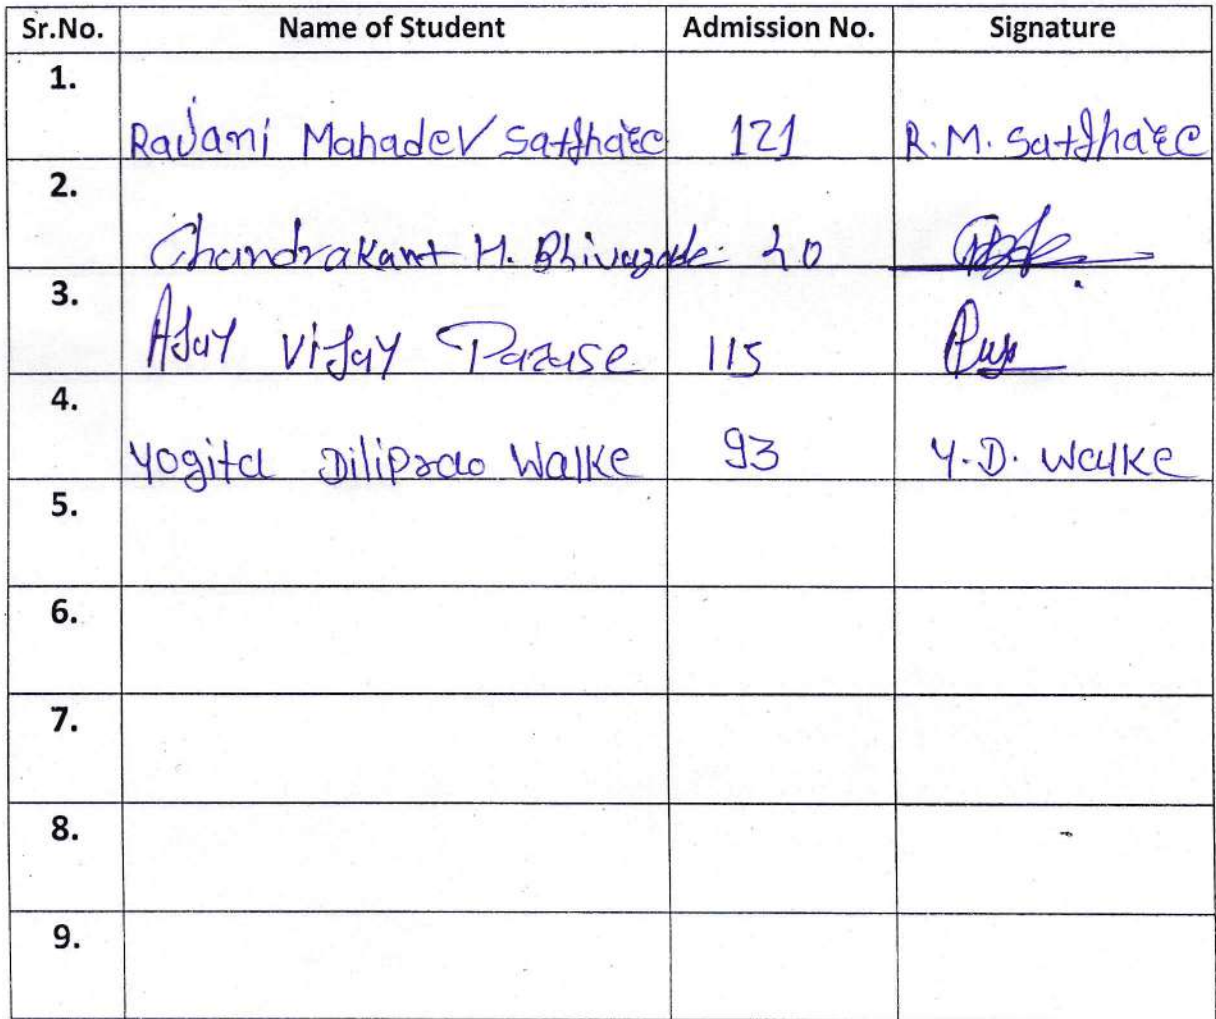 Sr.No. Name of Student Admission No. Signature
1. Rajani Mahadev 121 R.M.
2. Chandrakant H. 20
3. Ajay Vijay Parase 115
4. Yogita Diliprao Walke 93 Y.D. Walke
5.
6.
7.
8.
9.